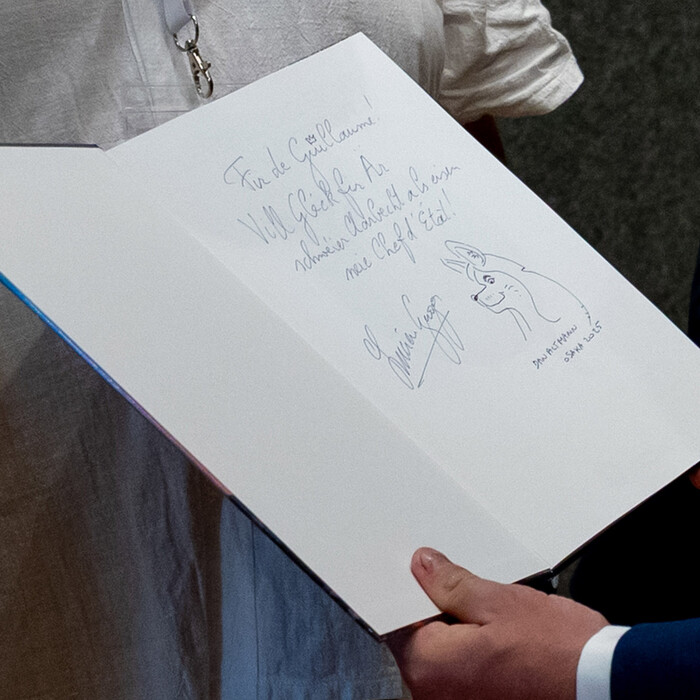 Fir de Guillaume!
Vill Gléck fir Är
schwéier Aarbecht als eisen
neie Chef d'Etat!
DAN ALTMANN
OSAKA 2025